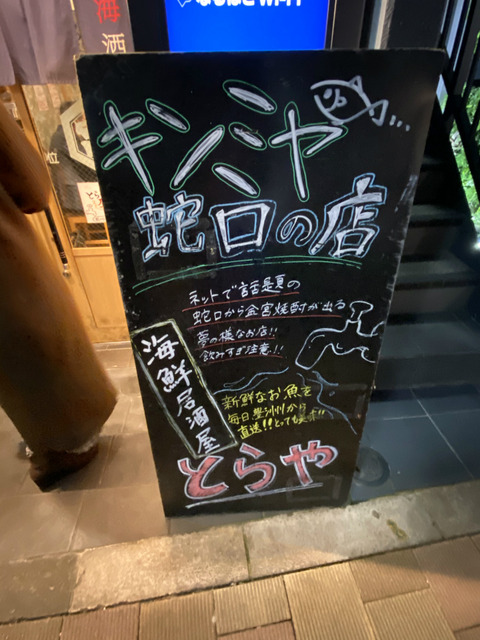 海酒
キンミヤ
蛇口の店
ネットで話題の
蛇口から金宮焼酎が出る
夢の様なお店!!
飲みすぎ注意!!
海鮮居酒屋
新鮮なお魚を
毎日豊洲から
直送!!とっても美味!!
とらや